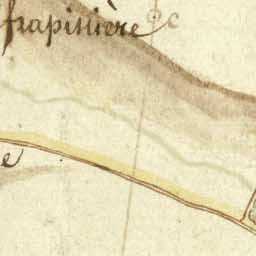 frapinière
e